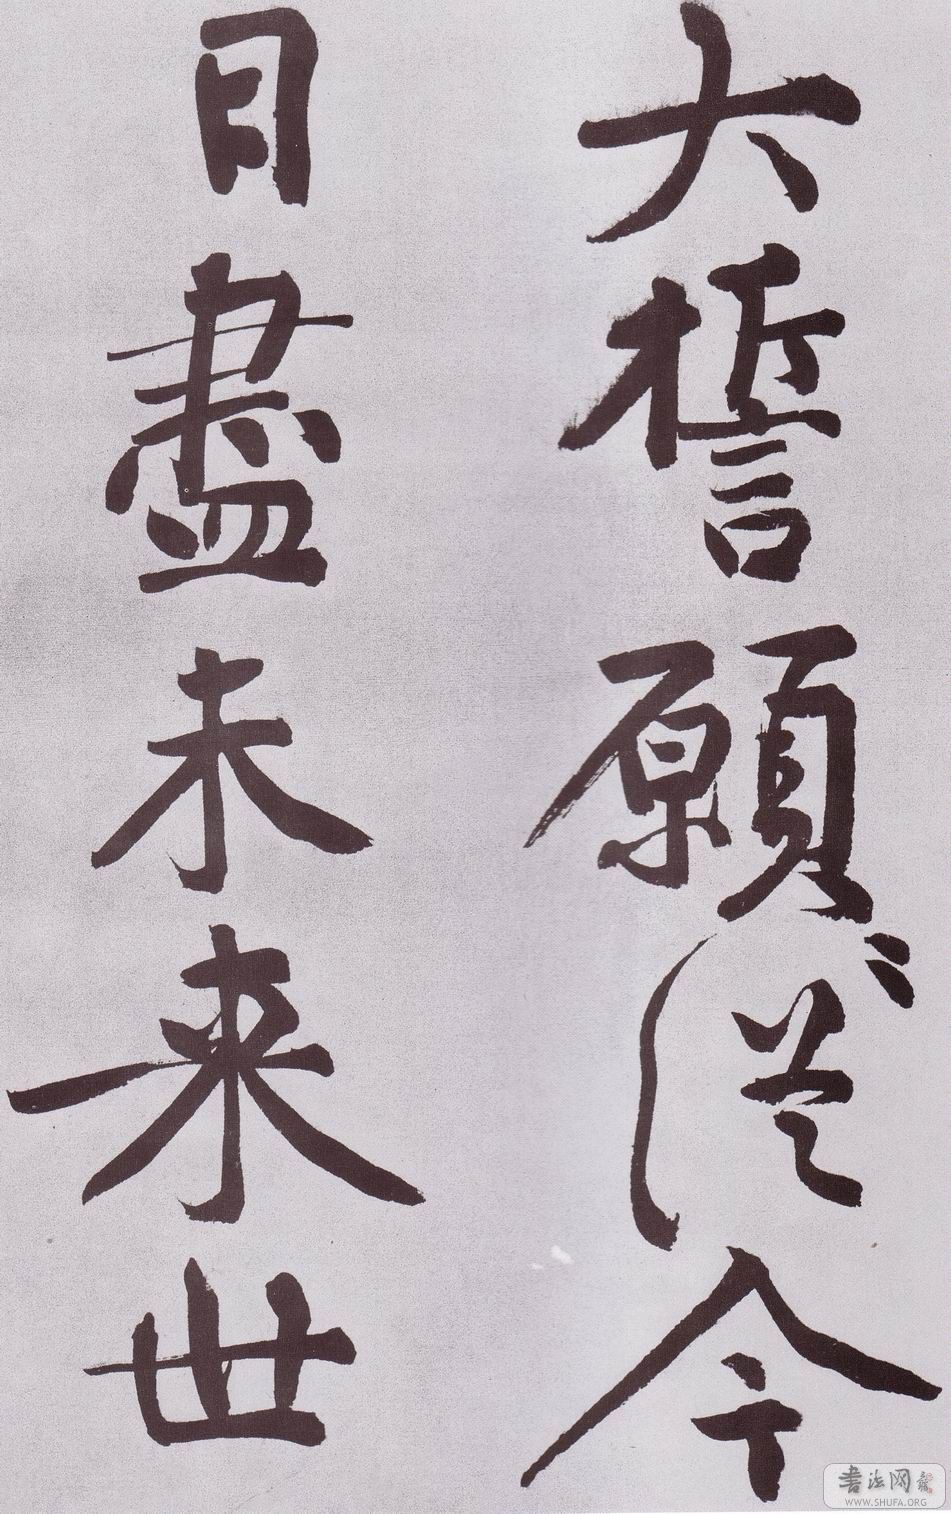 大誓願從今
日盡未来世
書法网
WWW.SHUFA.ORG